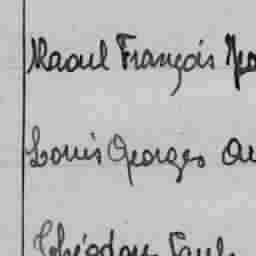 Raoul François
Louis Georges
Théodore Paul